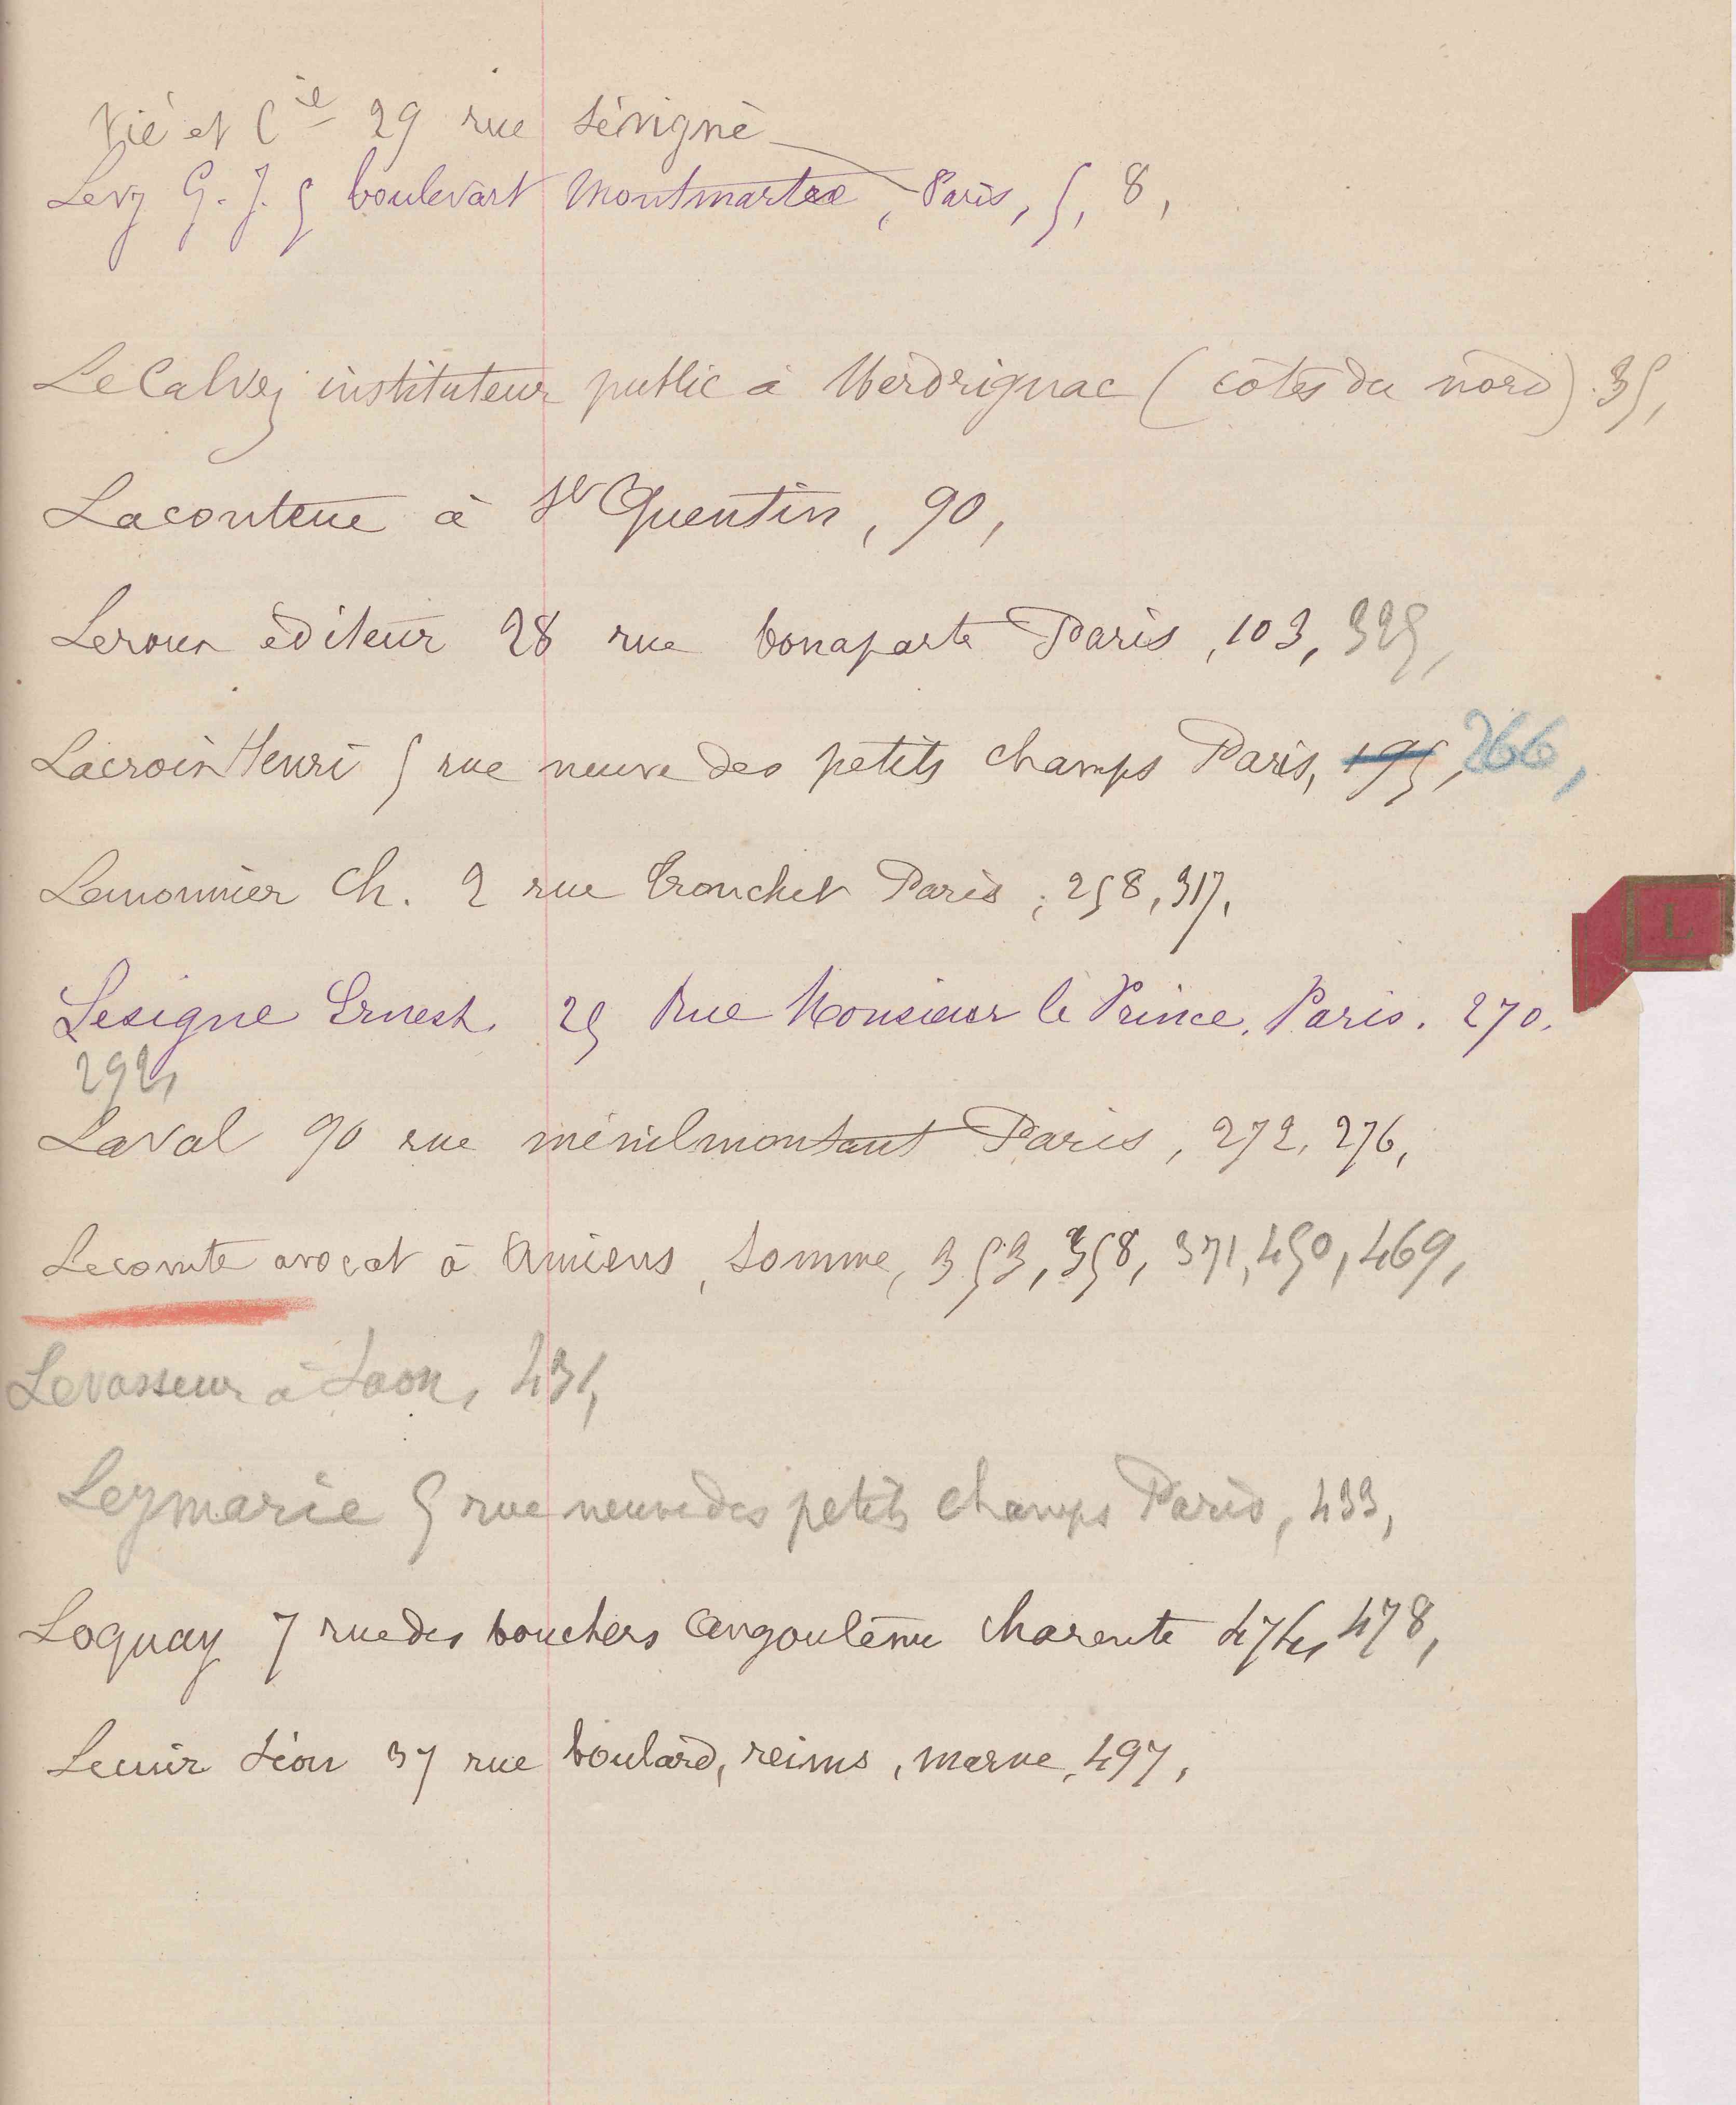 Vié et Cie 29 rue Sévigné
Levy G. J. 5 boulevart Montmartre, Paris, 5, 8,
Le Calvez instituteur public à Merdrignac (côtes du nord). 35,
Lacouteue à St Quentin, 90,
Leroux éditeur 28 rue bonaparte Paris, 103, 325,
Lacroix Henri 5 rue neuve des petits champs Paris, 195, 266,
Lemonnier Ch. 2 rue Tronchet Paris, 258, 317,
Lesigne Ernest. 25 Rue Monsieur le Prince. Paris. 270.
292,
Laval 90 rue ménilmontant Paris, 272, 276,
Lecomte avocat à Amiens, Somme, 353, 358, 371, 450, 469,
Levasseur à Laon, 431,
Leymarie 5 rue neuve des petits champs Paris, 433,
Loquay 7 rue des bouchers Angoulême charente 474, 478,
Lecuir Léon 37 rue boulard, reims, marne, 497,
L